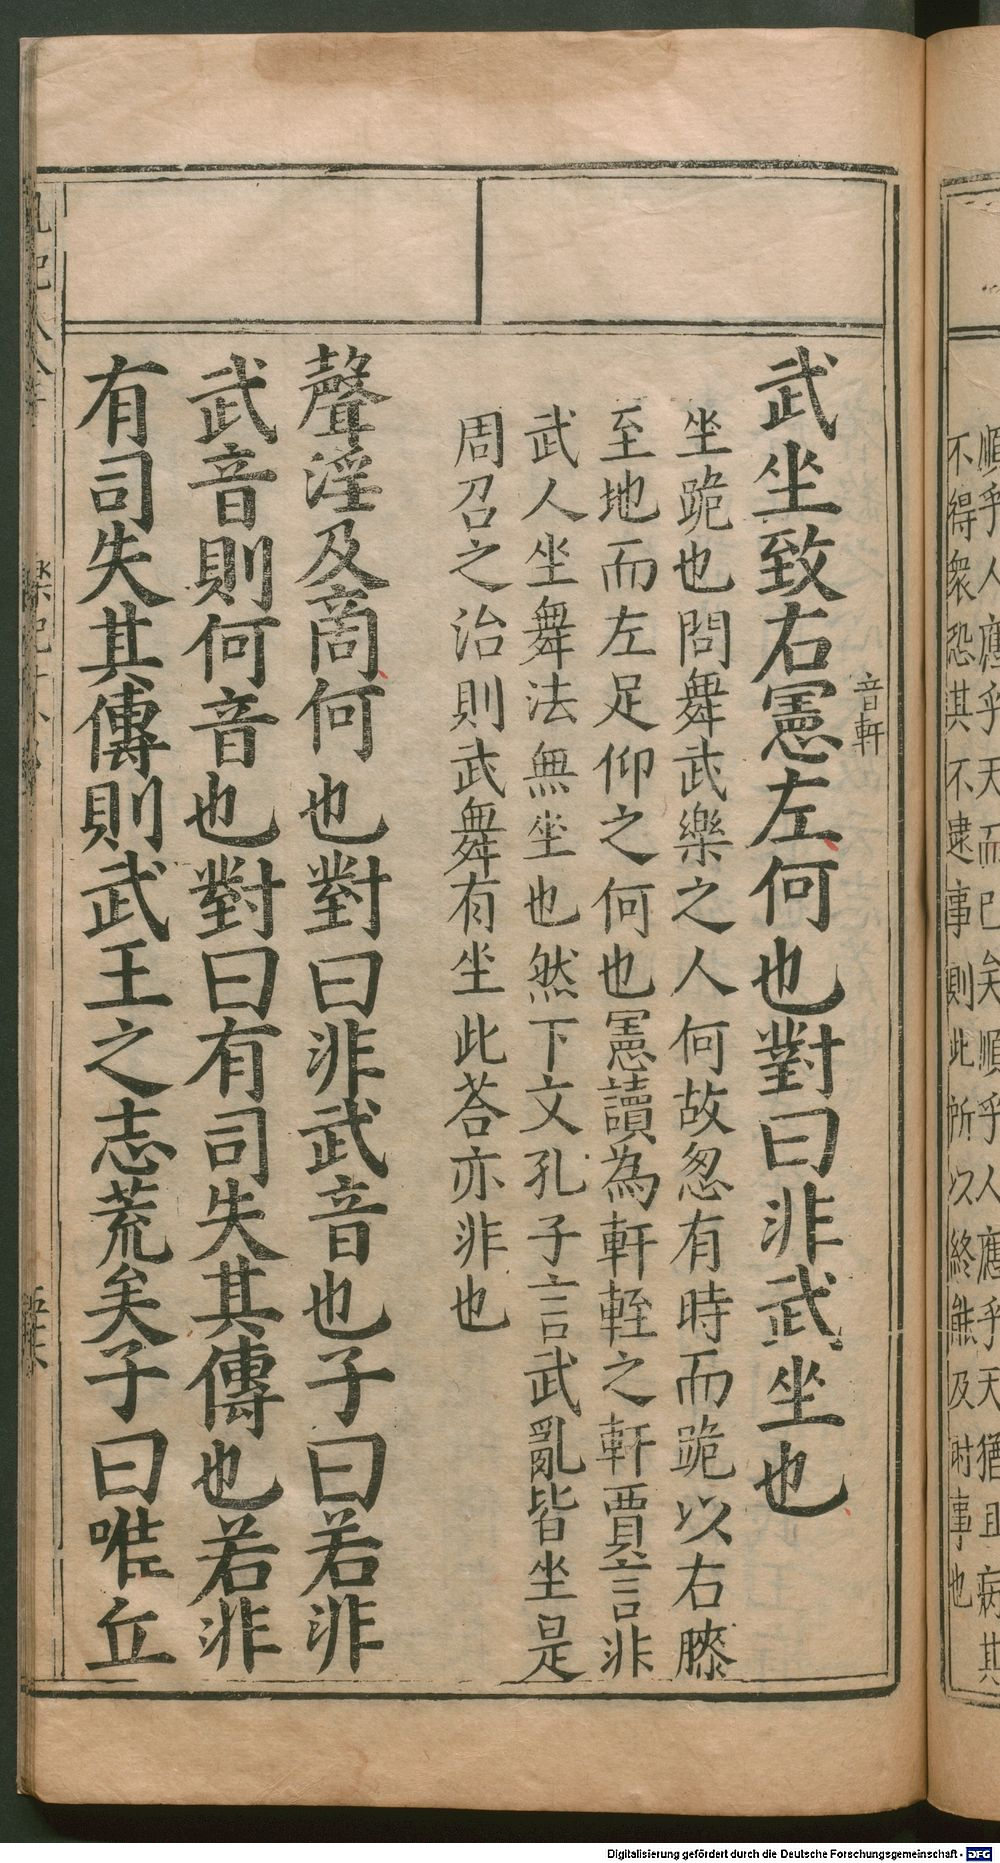 順乎人應乎天而已矣順乎人應乎天猶且病其
不得衆恐其不逮事則此所以終能及時事也
武坐致右憲左何也對曰非武坐也
音軒
坐跪也問舞武樂之人何故忽有時而跪以右膝
至地而左足仰之何也憲讀為軒輊之軒賈言非
武人坐舞法無坐也然下文孔子言武亂皆坐是
周召之治則武舞有坐此荅亦非也
聲淫及商何也對曰非武音也子曰若非
武音則何音也對曰有司失其傳也若非
有司失其傳則武王之志荒矣子曰唯丘
Digitalisierung gefördert durch die Deutsche Forschungsgemeinschaft - DFG